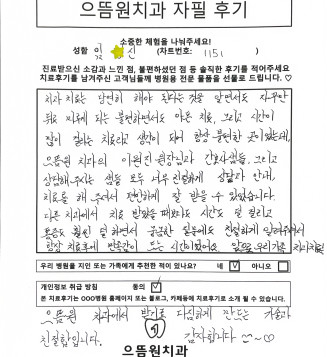 으뜸원치과 자필 후기
소중한 체험을 나눠주세요!
성함 임 신 (차트번호: 1151 )
진료받으신 소감과 느낀 점, 불편하셨던 점 등 솔직한 후기를 적어주세요
치료후기를 남겨주신 고객님들께 병원용 전문 물품을 선물로 드립니다. ♡
치과 치료는 당연히 해야 된다는 것을 알면서도 자꾸만
뒤로 미루게 되는 불편하면서도 아픈 치료, 그리고 시간이
많이 걸리는 치료라고 생각이 되어 항상 불편한 곳이었는데,
으뜸원 치과의 원장님과 간호사님들, 그리고
상담해주시는 샘들 모두 너무 친절하게 상담과 안내,
치료를 해 주셔서 편안하게 잘 받을 수 있었습니다.
다른 치과에서 치료 받았을 때보다도 시간도 덜 걸리고
통증도 훨씬 덜 하면서 궁금한 질문에도 친절하게 알려주셔서
항상 치료후에 만족감이 드는 시간이었어요. 앞으로 우리가족
우리 병원을 지인 또는 가족에게 추천한 적이 있나요? 네 ☑ 아니오 ☐
개인정보 취급 방침 동의 ☑
본 치료후기는 OOO병원 홈페이지 또는 블로그, 카페등에 치료후기로 소개 될 수 있습니다.
으뜸원 치과에서 받기로 다짐하게 만드는 기술과
친절함입니다. 감사합니다 ~♡
으뜸원치과